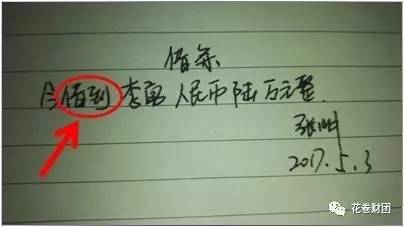 借条
今借到李勇人民币陆万元整.
张明
2017.5.3
花卷财团